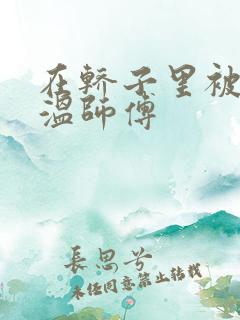 在轿子里被
温师傅
長思兮
未经同意禁止转载